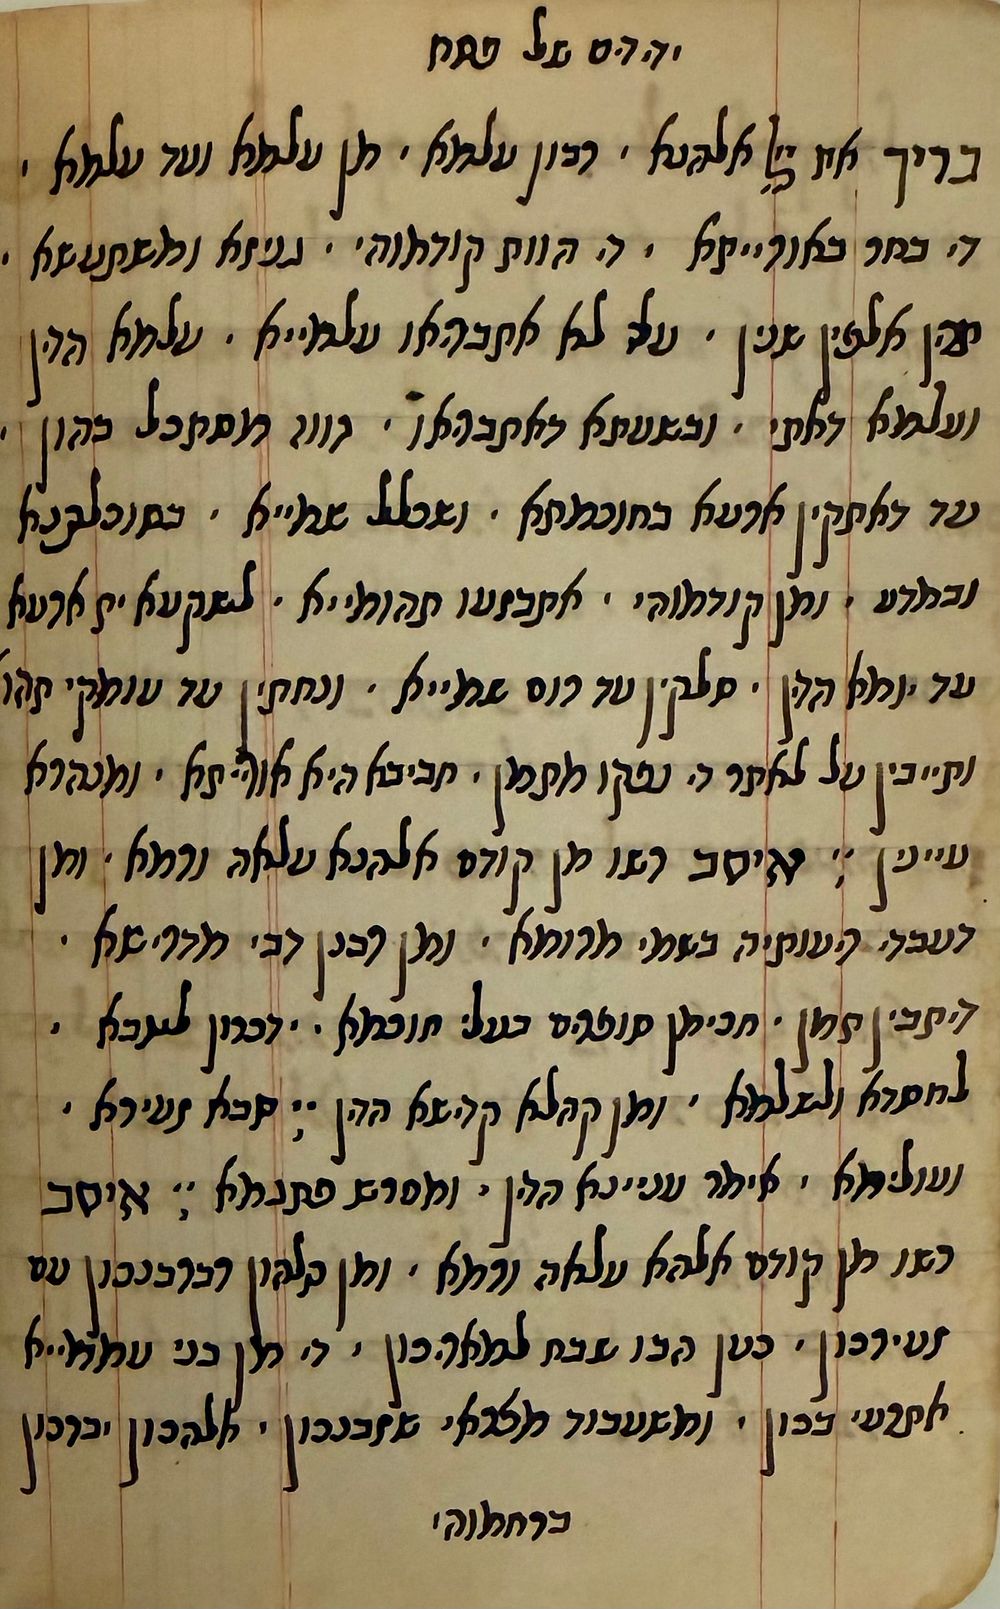 יהרס של פסח
בריך את ייי אלהנא ׳ רבון עלמא ׳ מן עלמא ועד עלמא ׳
די בחר באורייתא ׳ די הוות קודמוהי ׳ גניזא ומשתעשא ׳
תרין אלפין שנין ׳ עד לא אתבראו עלמייא ׳ עלמא הדין
ועלמא דאתי ׳ ובשעתא דאתבראו ׳ הווה מסתכל בהון ׳
עד דאתקין ארעא בחוכמתא ׳ ושכלל שמייא ׳ בסוכלתנא
ובמדע ׳ ומן קודמוהי ׳ אתבזעו תהומייא ׳ לשקעא ית ארעא
עד יומא הדין ׳ סלקין עד רום שמייא ׳ ונחתין עד עומקי תהו
ותייבין על לאתר די נפקו מתמן ׳ חביבא היא אורייתא ׳ ומנהרא
עיינין ׃ איסב רשו מן קודם אלהנא עלאה ורמא ׳ ומן
דעבד רעותיה בשמי מרומא ׳ ומן רבנן דבי מדרישא ׳
דיתבין תמן ׳ חכימן סופרים בעלי חוכמא ׳ ידכרון לטבא ׳
לחסדא ולשלמא ׳ ומן קהלא קדישא הדין ׃ סבא זעירא ׳
ועולימא ׳ אימר עניינא הדין ׳ ומפרש פתגמא ׃ איסב
רשו מן קודם אלהא עלאה ורמא ׳ ומן כלהון רברבנכון עם
זעירכון ׳ כען הבו שבח למארכון ׳ די מן בני עממייא
אתרעי בכון ׳ ומשעבוד מצראי שזבנכון ׳ אלהכון יברכון
ברחמוהי